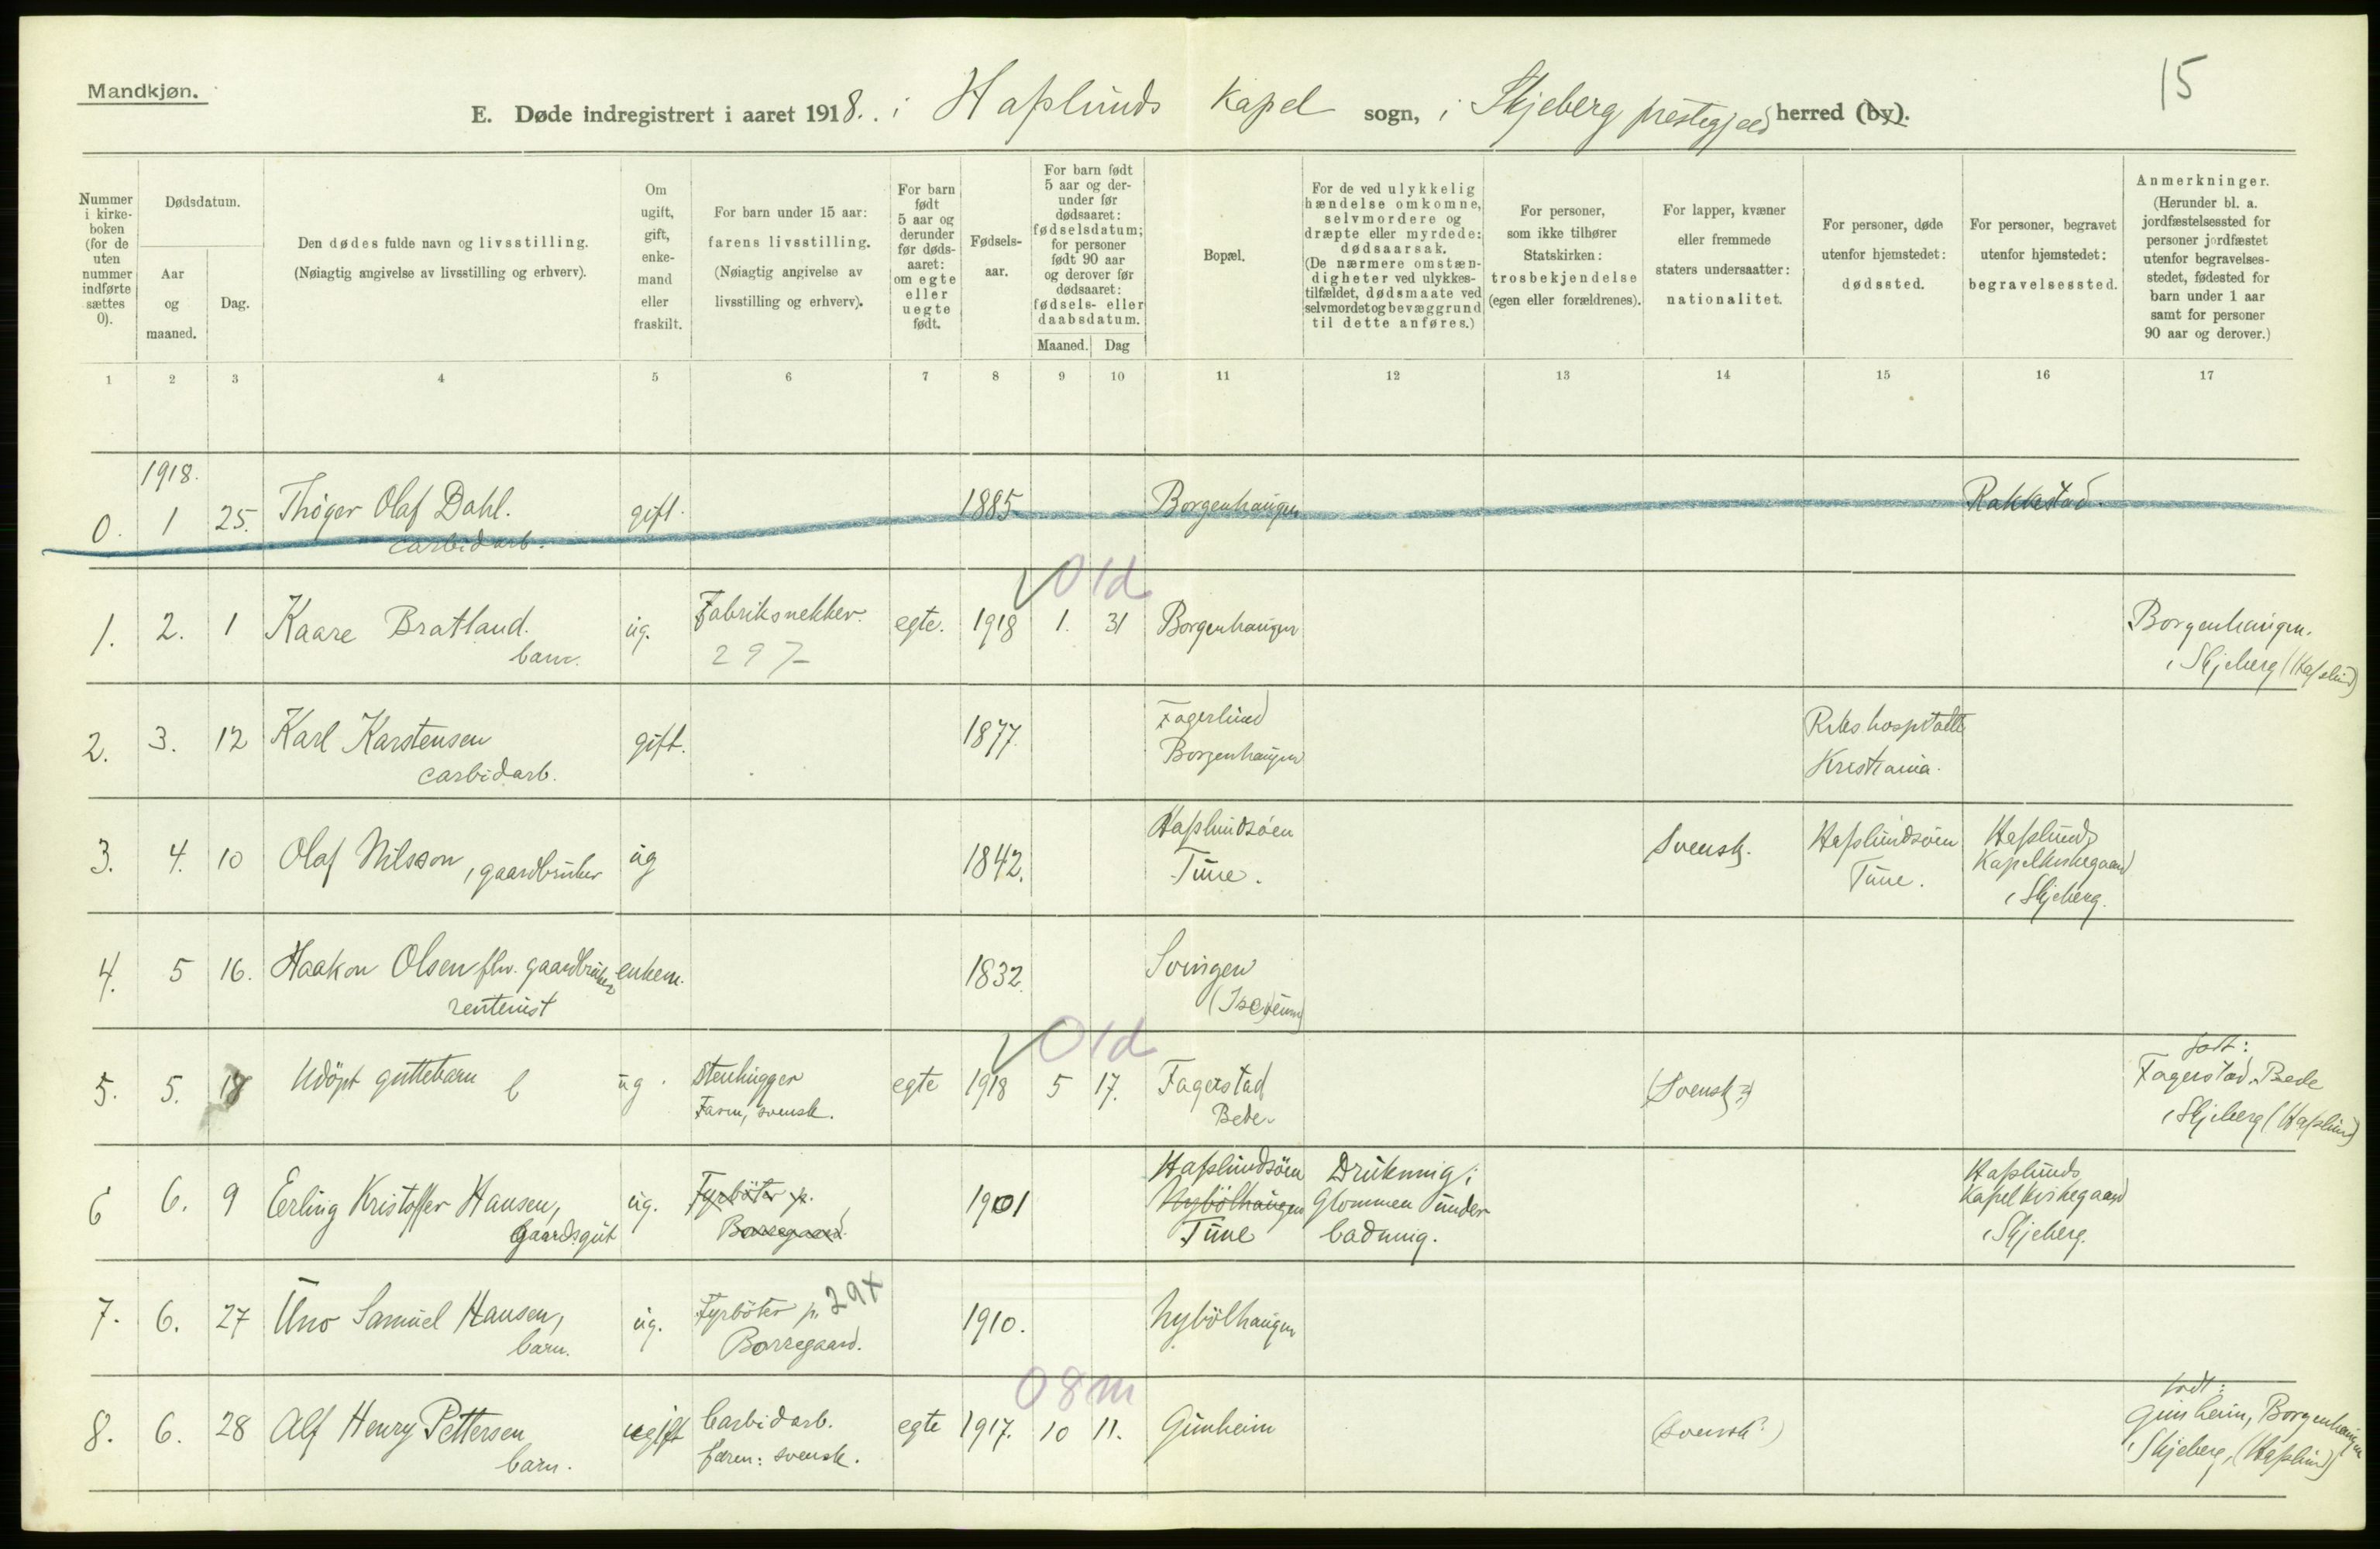 15
Mandkjøn.
E. Døde indregistrert i aaret 1918. . i Hafslunds Kapel sogn, i Skjeberg prestegjeld herred (by).
Nummer i kirke-boken (for de uten nummer indførte sættes 0).
Dødsdatum.
Aar og maaned.
Dag.
Den dødes fulde navn og livsstilling.
(Nøiagtig angivelse av livsstilling og erhverv).
Om ugift, gift, enke-mand eller fraskilt.
For barn under 15 aar: farens livsstilling.
(Nøiagtig angivelse av livsstilling og erhverv).
For barn født 5 aar og derunder før døds-aaret: om egte eller uegte født.
Fødsels-aar.
For barn født 5 aar og der-under før dødsaaret: fødselsdatum; for personer født 90 aar og derover før dødsaaret: fødsels- eller daabsdatum.
Maaned. Dag
Bopæl.
For de ved ulykkelig hændelse omkomne, selvmordere og dræpte eller myrdede: dødsaarsak.
(De nærmere omstæn-digheter ved ulykkes-tilfældet, dødsmaate ved selvmordet og bevæggrund til dette anføres.)
For personer, som ikke tilhører Statskirken: trosbekjendelse (egen eller forældrenes).
For lapper, kvæner eller fremmede staters undersaatter: nationalitet.
For personer, døde utenfor hjemstedet: dødssted.
For personer, begravet utenfor hjemstedet: begravelsessted.
Anmerkninger.
(Herunder bl. a. jordfæstelsessted for personer jordfæstet utenfor begravelses-stedet, fødested for barn under 1 aar samt for personer 90 aar og derover.)
1 2 3 4 5 6 7 8 9 10 11 12 13 14 15 16 17
1918.
0. 1 25. Thøger Olaf Dahl. gift. 1885 Borgenhaugen Rakkestad.
carbidarb.
01d
1. 2. 1 Kaare Bratland. ug. Fabriksnekker. egte. 1918 1. 31 Borgenhaugen Borgenhaugen.
barn. 297 i Skjeberg (Hafslund)
2. 3. 12 Karl Karstensen gift. 1877. Fagerlund Rikshospitalet
carbidarb. Borgenhaugen Kristiania.
3. 4. 10 Olaf Nilsson, gaardbruker ug 1842. Hafslundsøen Svensk. Hafslundsøen Hafslunds
Tune. Tune. Kapelkirkegaard
i Skjeberg.
4. 5 16. Haakon Olsen fhv. gaardbruker enkem. 1832. Svingen
rentenist
01d
5. 5. 18 Udöpt guttebarn ug. Stenhugger egte 1918 5 17. Fagerstad (Svensk?) født:
Faren, svensk. Bede. Fagerstad, Bede
i Skjeberg (Hafslund)
6 6. 9 Erling Kristoffer Hansen, ug. Fyrböter p. 1901 Hafslundsöen Drukning i Hafslunds
gaardsgut Borregaard. Nybölhaugen Glommen under Kapelkirkegaard
Tune badning. i Skjeberg.
7. 6. 27 Uno Samuel Hansen, ug. Fyrböter p. 29x 1910. Nybölhaugen
barn. Borregaard.
08m
8. 6. 28 Alf Henry Pettersen ugift Carbidarb. egte 1917. 10 11. Gunheim (svensk?) født:
barn. faren: svensk. Gunheim, Borgenhaugen
i Skjeberg, (Hafslund)